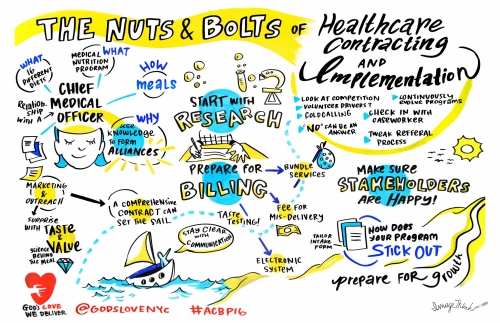 THE NUTS & BOLTS OF
Healthcare
Contracting
AND
Implementation
WHAT
16
DIFFERENT
DIETS
MEDICAL
NUTRITION
PROGRAM
WHAT
HOW
meals
RELATION-
SHIP
WITH A
CHIEF
MEDICAL
OFFICER
WHY
USE
KNOWLEDGE
TO FORM
ALLIANCES
START WITH
RESEARCH
LOOK AT COMPETITION
VOLUNTEER DRIVERS?
COLDCALLING
"NO" CAN BE AN
ANSWER
CONTINUOUSLY
EVOLVE PROGRAMS
CHECK IN WITH
CASEWORKER
TWEAK REFERRAL
PROCESS
PREPARE FOR
BILLING
BUNDLE
SERVICES
FEE FOR
MIS-DELIVERY
ELECTRONIC
SYSTEM
MARKETING
&
OUTREACH
SURPRISE
WITH TASTE
&
VALUE
SCIENCE
BEHIND
THE MEAL
A COMPREHENSIVE
CONTRACT CAN
SET THE SAIL
TASTE
TESTING!
STAY CLEAR
WITH
COMMUNICATION
MAKE SURE
STAKEHOLDERS
ARE HAPPY!
TAILOR
INTAKE
FORM
HOW DOES
YOUR PROGRAM
STICK OUT
prepare for growth
GOD'S LOVE
WE DELIVER
@GODSLOVENYC #ACBP16